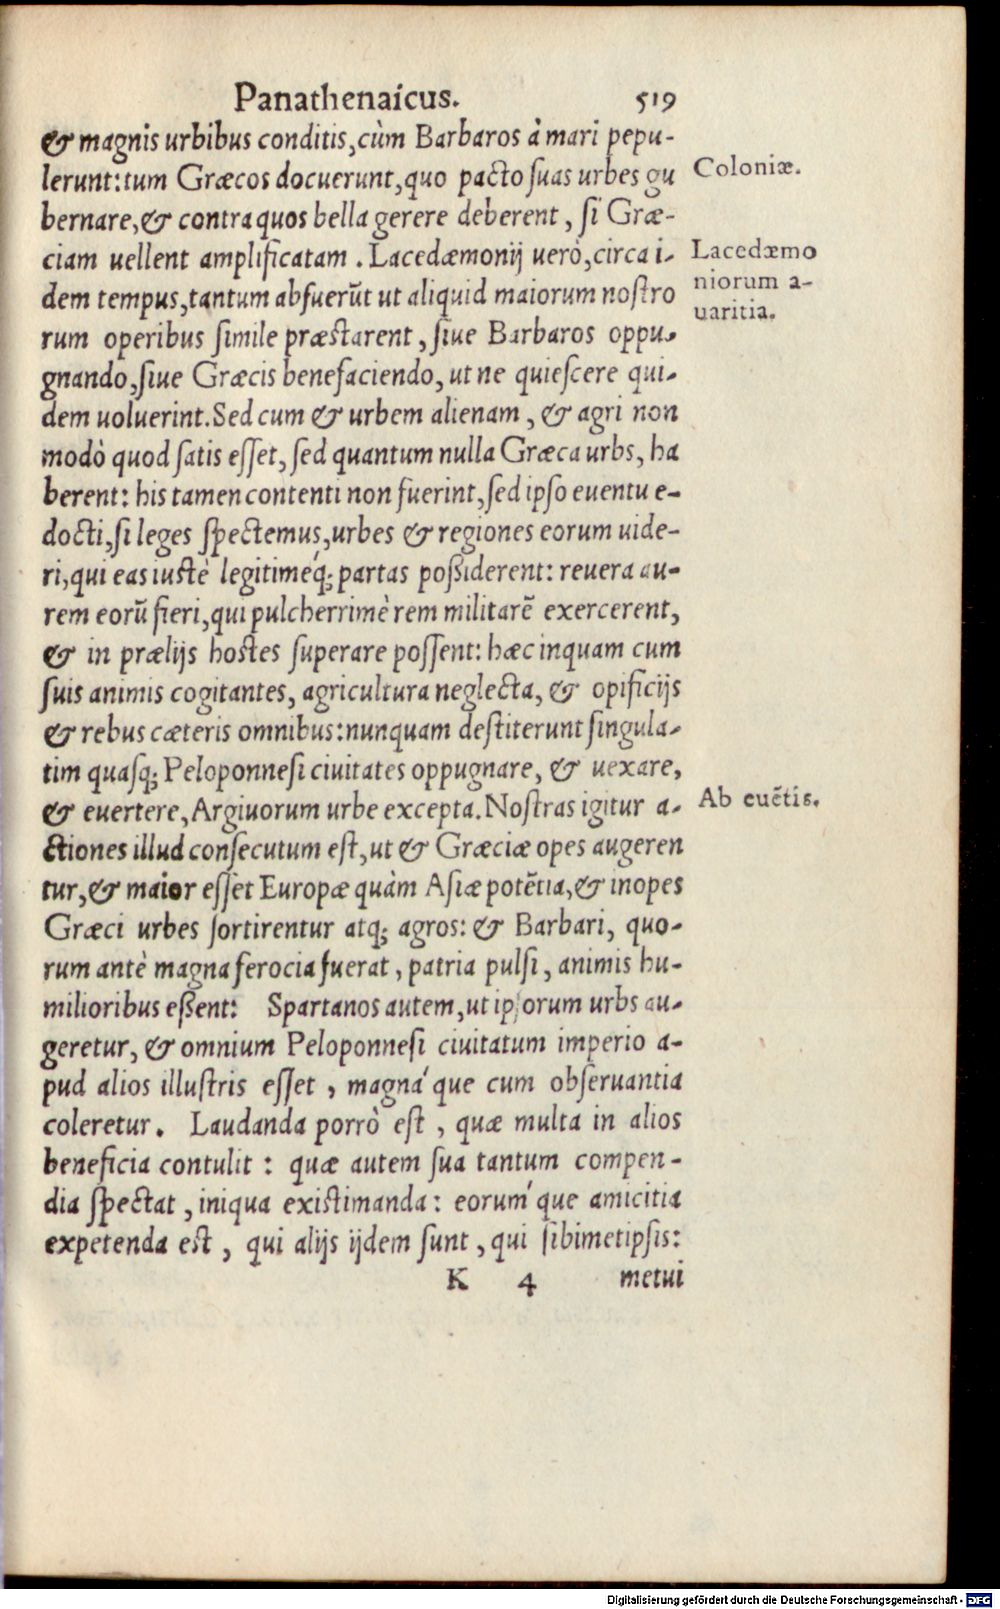 Panathenaicus. 519
& magnis urbibus conditis, cùm Barbaros à mari pepu-
lerunt: tum Græcos docuerunt, quo pacto suas urbes gu
bernare, & contra quos bella gerere deberent, si Græ-
ciam uellent amplificatam. Lacedæmonij uerò, circa i-
dem tempus, tantum abfuerũt ut aliquid maiorum nostro
rum operibus simile præstarent, siue Barbaros oppu-
gnando, siue Græcis benefaciendo, ut ne quiescere qui-
dem uoluerint. Sed cum & urbem alienam, & agri non
modò quod satis esset, sed quantum nulla Græca urbs, ha
berent: his tamen contenti non fuerint, sed ipso euentu e-
docti, si leges spectemus, urbes & regiones eorum uide-
ri, qui eas iustè legitimeq́; partas possiderent: reuera au-
rem eorũ fieri, qui pulcherrimè rem militarẽ exercerent,
& in prælijs hostes superare possent: hæc inquam cum
suis animis cogitantes, agricultura neglecta, & opificijs
& rebus cæteris omnibus: nunquam destiterunt singula-
tim quasq; Peloponnesi ciuitates oppugnare, & uexare,
& euertere, Argiuorum urbe excepta. Nostras igitur a-
ctiones illud consecutum est, ut & Græciæ opes augeren
tur, & maior esset Europæ quàm Asiæ potẽtia, & inopes
Græci urbes sortirentur atq; agros: & Barbari, quo-
rum antè magna ferocia fuerat, patria pulsi, animis hu-
milioribus essent: Spartanos autem, ut ipsorum urbs au-
geretur, & omnium Peloponnesi ciuitatum imperio a-
pud alios illustris esset, magná que cum obseruantia
coleretur. Laudanda porrò est, quæ multa in alios
beneficia contulit: quæ autem sua tantum compen-
dia spectat, iniqua existimanda: eoruḿ que amicitia
expetenda est, qui alijs ijdem sunt, qui sibimetipsis:
K 4 metui
Coloniæ.
Lacedæmo
niorum a-
uaritia.
Ab euẽtis.
Digitalisierung gefördert durch die Deutsche Forschungsgemeinschaft - DFG